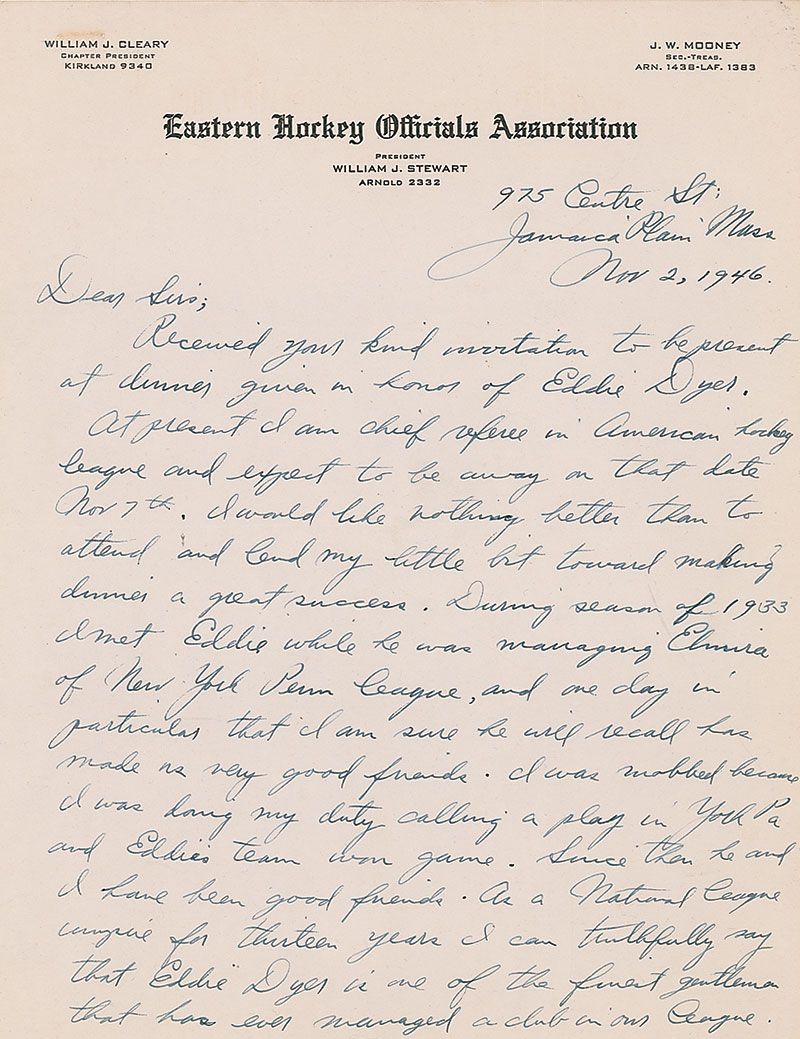 WILLIAM J. CLEARY
CHAPTER PRESIDENT
KIRKLAND 9340
J. W. MOONEY
SEC.-TREAS.
ARN. 1438-LAF. 1383
Eastern Hockey Officials Association
PRESIDENT
WILLIAM J. STEWART
ARNOLD 2332
975 Centre St;
Jamaica Plain Mass
Nov 2, 1946.
Dear Sirs;
Received your kind invitation to be present
at dinner given in honor of Eddie Dyer.
At present I am chief referee in American hockey
league and expect to be away on that date
Nov 7th. I would like nothing better than to
attend and lend my little bit toward making
dinner a great success. During season of 1933
I met Eddie while he was managing Elmira
of New York Penn League, and one day in
particular that I am sure he will recall has
made us very good friends. I was mobbed because
I was doing my duty calling a play in York Pa
and Eddie's team won game. Since then he and
I have been good friends. As a National League
umpire for thirteen years I can truthfully say
that Eddie Dyer is one of the finest gentlemen
that has ever managed a club in our League.